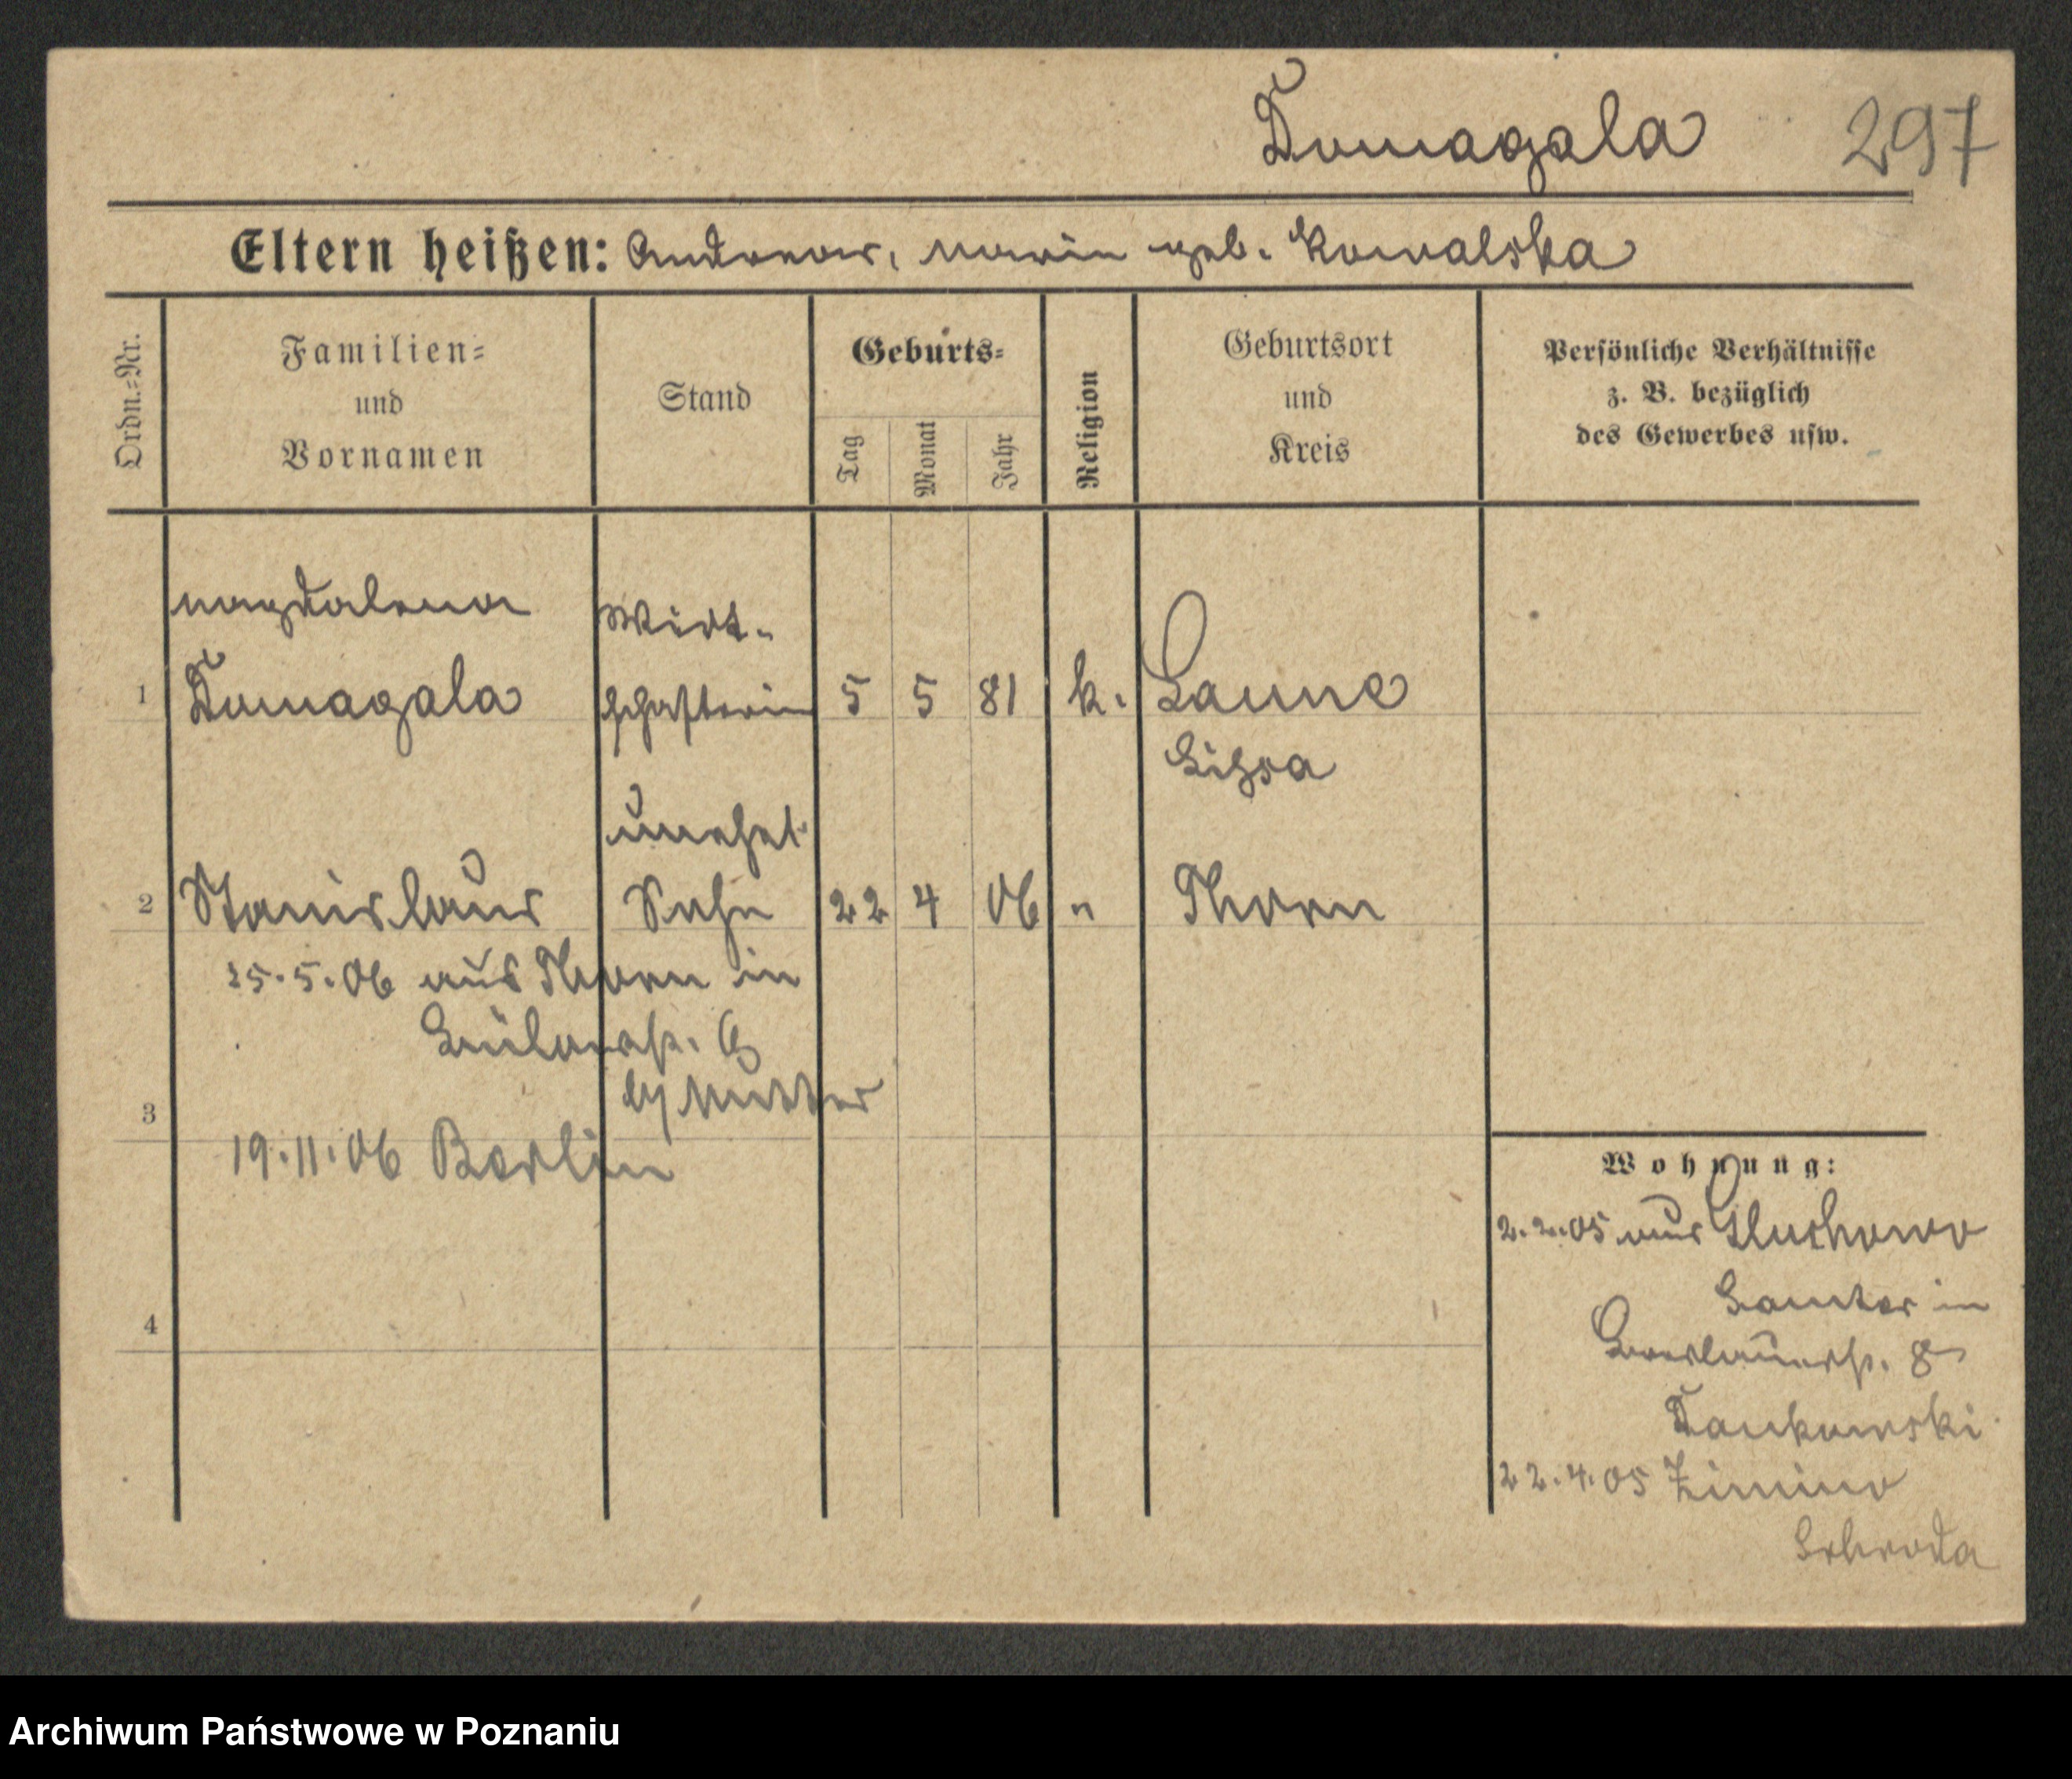 Domagala 297
Eltern heißen: Andreas, Marie geb. Kowalska
Ordn.=Nr.
Familien=
und
Vornamen
Stand
Geburts=
Tag
Monat
Jahr
Religion
Geburtsort
und
Kreis
Persönliche Verhältnisse
z. B. bezüglich
des Gewerbes usw.
Magdalena Wirt-
1 Domagala schafterin 5 5 81 k. Laune
Lissa
unehel.
2 Stanislaus Sohn 22 4 06 " Thorn
25.5.06 aus Thorn in
6
b/ Mutter
3
19.11.06 Berlin
Wohnung:
2.2.05 aus Gluchowo
Samter in
Breslauerstr. 8
4
Dankowski
22.4.05 Zimino
Schroda
Archiwum Państwowe w Poznaniu